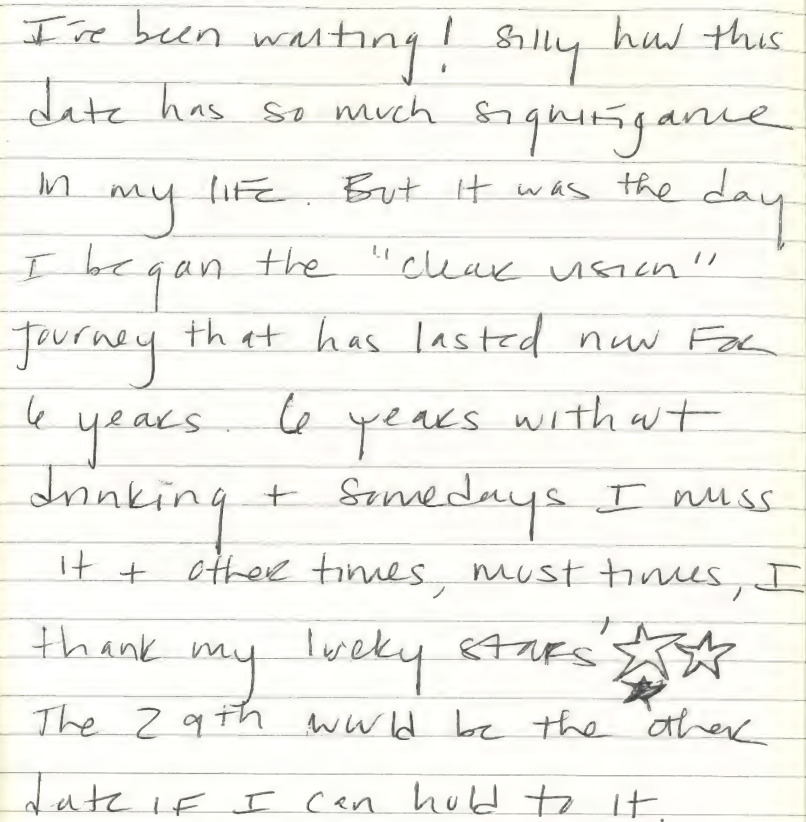 I've been waiting! Silly how this
date has so much signifigance
in my life. But it was the day
I began the "clear vision"
journey that has lasted now For
6 years. 6 years without
drinking + Somedays I miss
it + other times, most times, I
thank my lucky stars'
The 29th would be the other
date if I can hold to it.